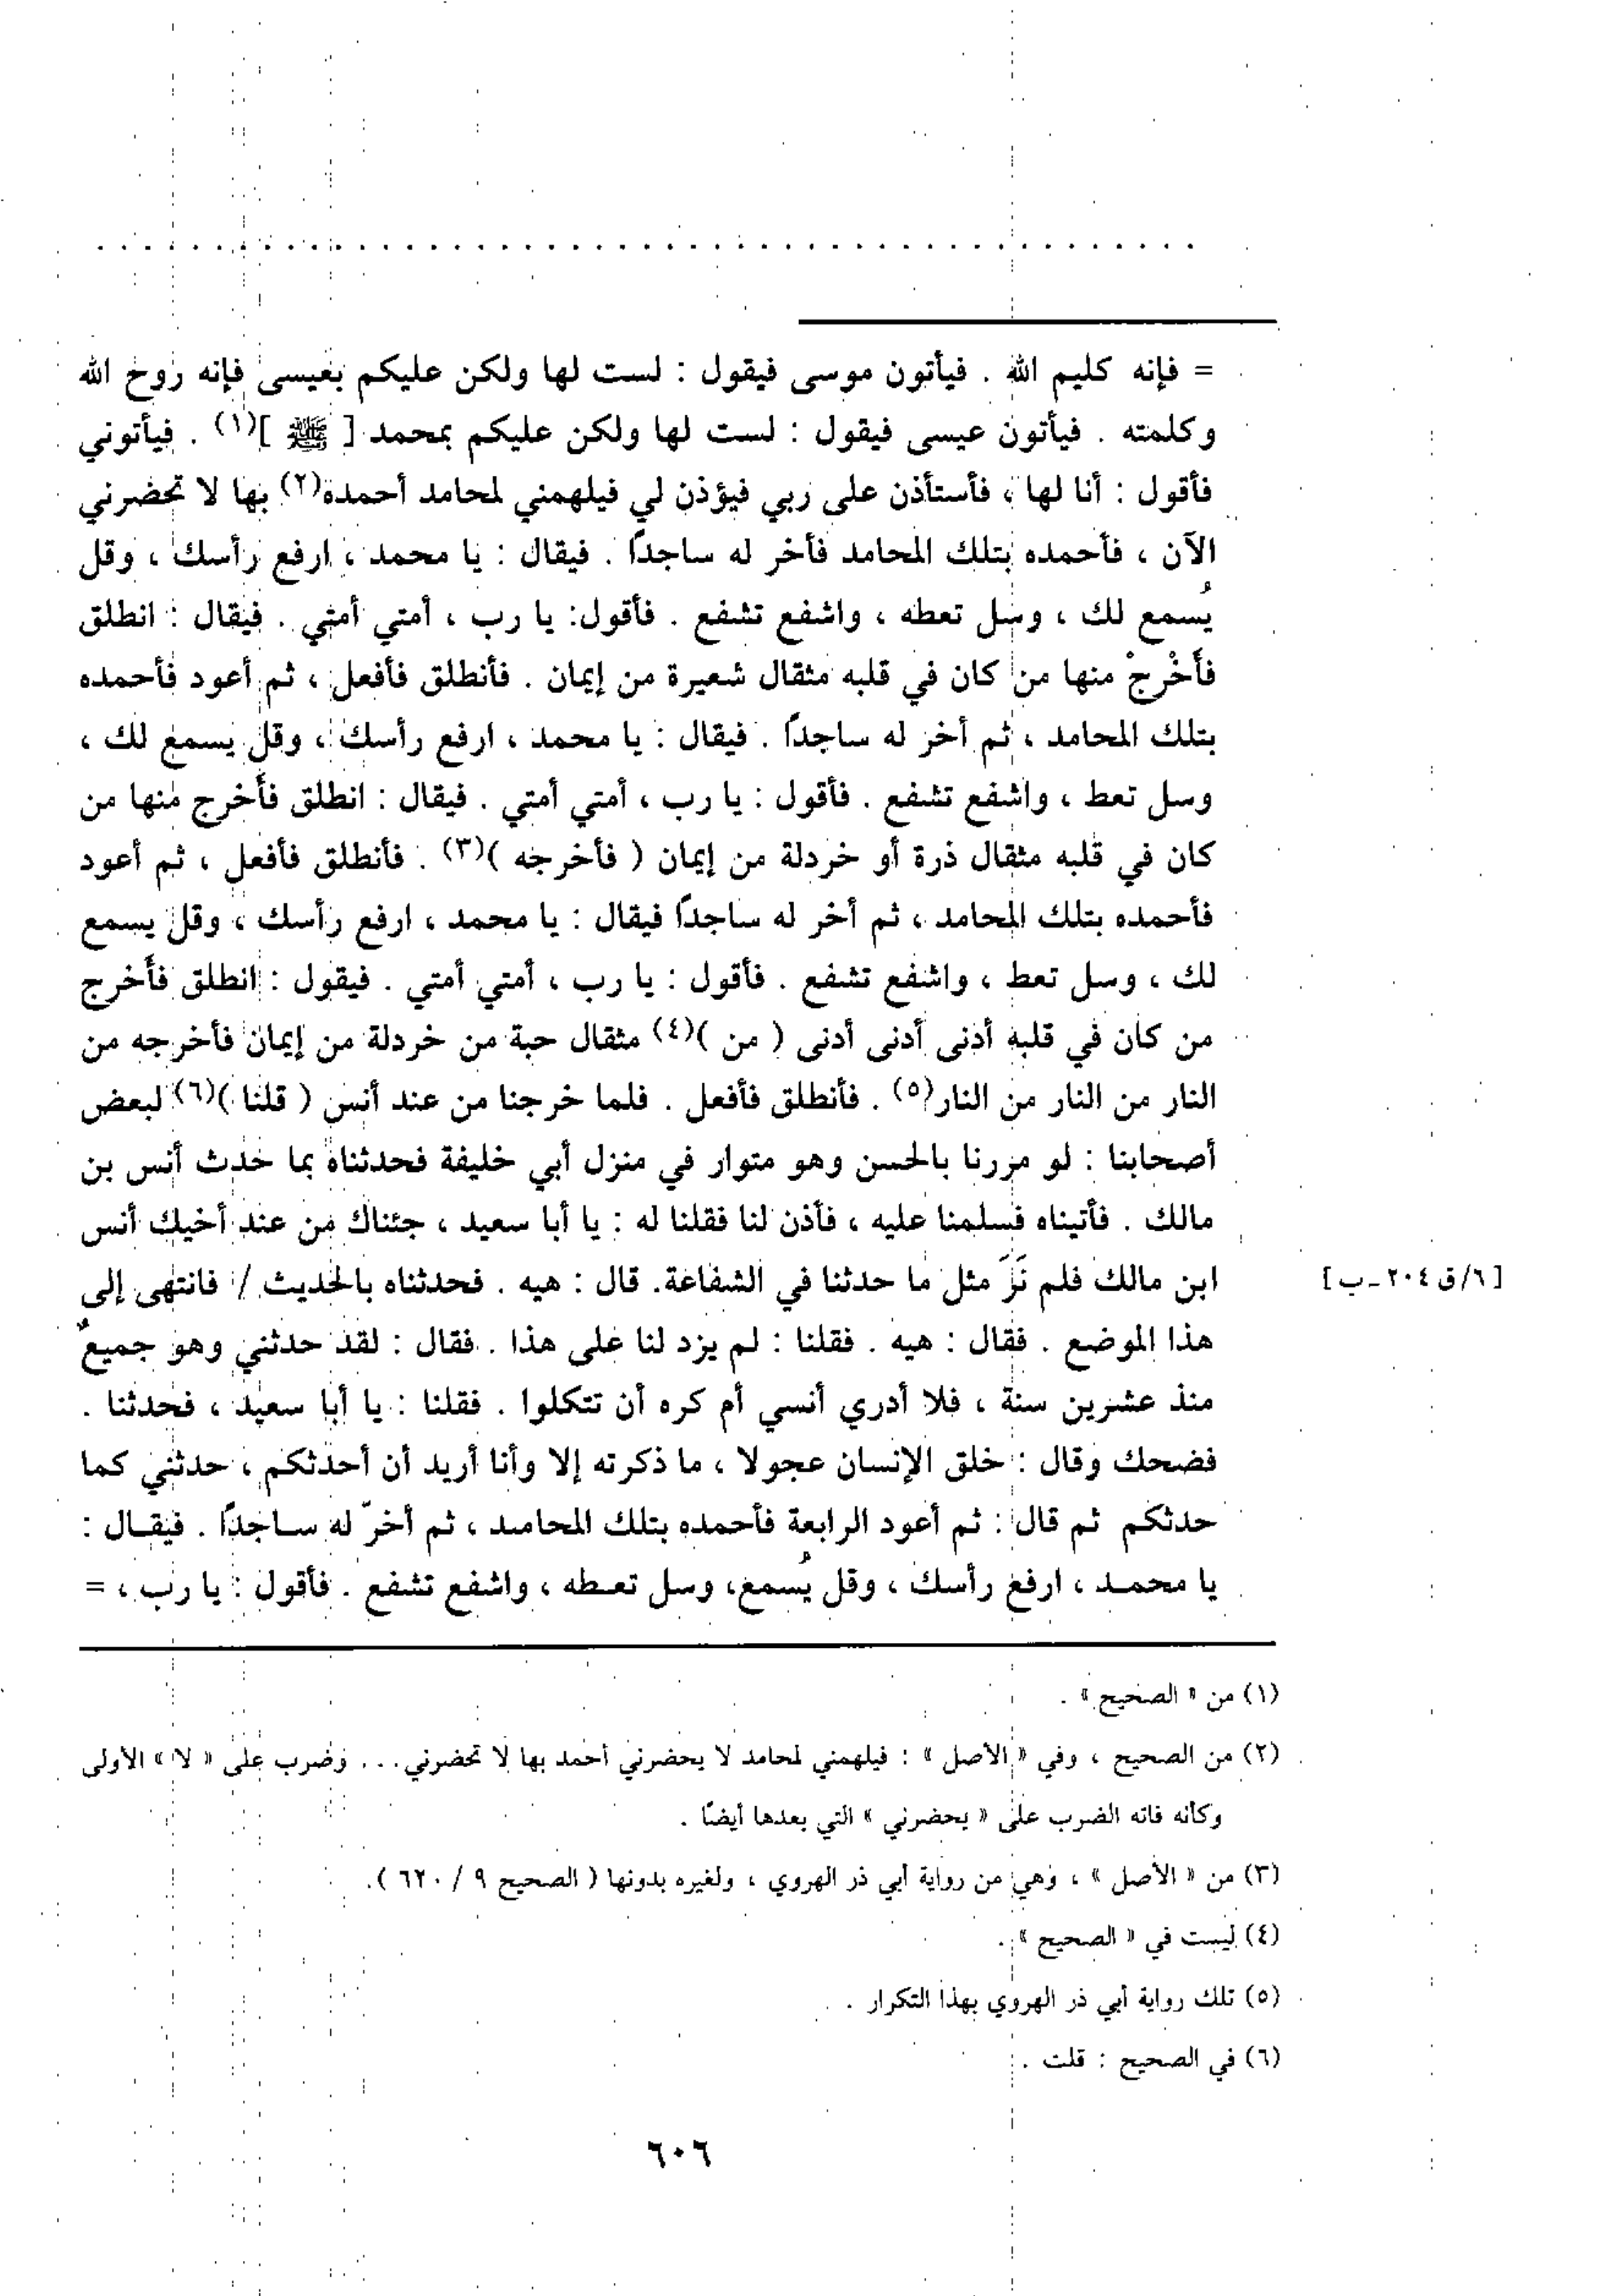 . . . . . . . . . . . . . . . . . . . . . . . . . . . . . . . . . . . . . . . . . . . . . . .
= فإنه كليم الله . فيأتون موسى فيقول : لست لها ولكن عليكم بعيسى فإنه روح الله
وكلمته . فيأتون عيسى فيقول : لست لها ولكن عليكم بمحمد [ ﷺ ](١) . فيأتوني
فأقول : أنا لها ، فأستأذن على ربي فيؤذن لي فيلهمني لمحامد أحمده(٢) بها لا تحضرني
الآن ، فأحمده بتلك المحامد فأخر له ساجدًا . فيقال : يا محمد ، ارفع رأسك ، وقل
يُسمع لك ، وسل تعطه ، واشفع تشفع . فأقول: يا رب ، أمتي أمتي . فيقال : انطلق
فأَخْرِجْ منها من كان في قلبه مثقال شعيرة من إيمان . فأنطلق فأفعل ، ثم أعود فأحمده
بتلك المحامد ، ثم أخر له ساجدًا . فيقال : يا محمد ، ارفع رأسك ، وقل يسمع لك ،
وسل تعط ، واشفع تشفع . فأقول : يا رب ، أمتي أمتي . فيقال : انطلق فأَخرج منها من
كان في قلبه مثقال ذرة أو خردلة من إيمان ( فأخرجه )(٣) . فأنطلق فأفعل ، ثم أعود
فأحمده بتلك المحامد ، ثم أخر له ساجدًا فيقال : يا محمد ، ارفع رأسك ، وقل يسمع
لك ، وسل تعط ، واشفع تشفع . فأقول : يا رب ، أمتي أمتي . فيقول : انطلق فأَخرج
من كان في قلبه أدنى أدنى أدنى ( من )(٤) مثقال حبة من خردلة من إيمان فأخرجه من
النار من النار من النار(٥) . فأنطلق فأفعل . فلما خرجنا من عند أنس ( قلنا )(٦) لبعض
أصحابنا : لو مررنا بالحسن وهو متوار في منزل أبي خليفة فحدثناه بما حدث أنس بن
مالك . فأتيناه فسلمنا عليه ، فأذن لنا فقلنا له : يا أبا سعيد ، جئناك من عند أخيك أنس
ابن مالك فلم نَرَ مثل ما حدثنا في الشفاعة. قال : هيه . فحدثناه بالحديث / فانتهى إلى
[ ٦/ ق ٢٠٤ ـ ب ]
هذا الموضع . فقال : هيه . فقلنا : لم يزد لنا على هذا . فقال : لقد حدثني وهو جميعٌ
منذ عشرين سنة ، فلا أدري أنسي أم كره أن تتكلوا . فقلنا : يا أبا سعيد ، فحدثنا .
فضحك وقال : خلق الإنسان عجولا ، ما ذكرته إلا وأنا أريد أن أحدثكم ، حدثني كما
حدثكم ثم قال : ثم أعود الرابعة فأحمده بتلك المحامد ، ثم أخرّ له ساجدًا . فيقال :
يا محمد ، ارفع رأسك ، وقل يُسمع، وسل تعطه ، واشفع تشفع . فأقول : يا رب ، =
(١) من « الصحيح » .
(٢) من الصحيح ، وفي « الأصل » : فيلهمني لمحامد لا يحضرني أحمد بها لا تحضرني... وضرب على « لا » الأولى
وكأنه فاته الضرب على « يحضرني » التي بعدها أيضًا .
(٣) من « الأصل » ، وهي من رواية أبي ذر الهروي ، ولغيره بدونها ( الصحيح ٩ / ٦٢٠ ).
(٤) ليست في « الصحيح » .
(٥) تلك رواية أبي ذر الهروي بهذا التكرار .
(٦) في الصحيح : قلت .
٦٠٦